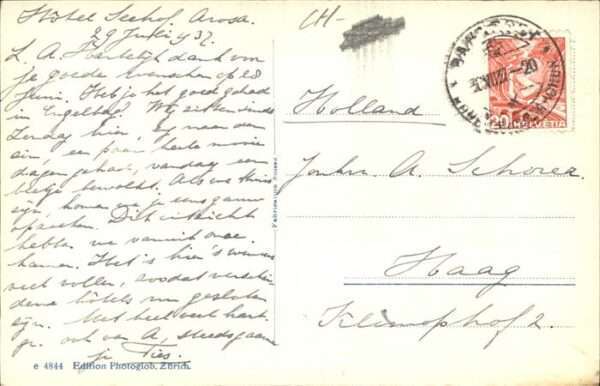 Hotel Seehof, Arosa.
29 Juli '37.
L. A. Hartelijk dank voor
je goede wenschen op 28
Juni. Heb je het goed gehad
in Engeland? Wij zitten sinds
Zondag hier, en
een paar mooie
dagen gehad, vandaag een
beetje bewolkt. Als we thuis
zijn, komen we je eens gauw
opzoeken. Dit uitzicht
hebben we vanuit onze
kamer. Het is hier 's
niet vol, zoodat verschei
dene hôtels nu gesloten
zijn. Met heel veel hart.
gr. ook van A., steeds gaarne
je Ties.
CH-
Holland
A. Schorer
Haag
Klimophof 2.
HELVETIA
20
Fabrication Suisse
e 4844 Edition Photoglob, Zürich.